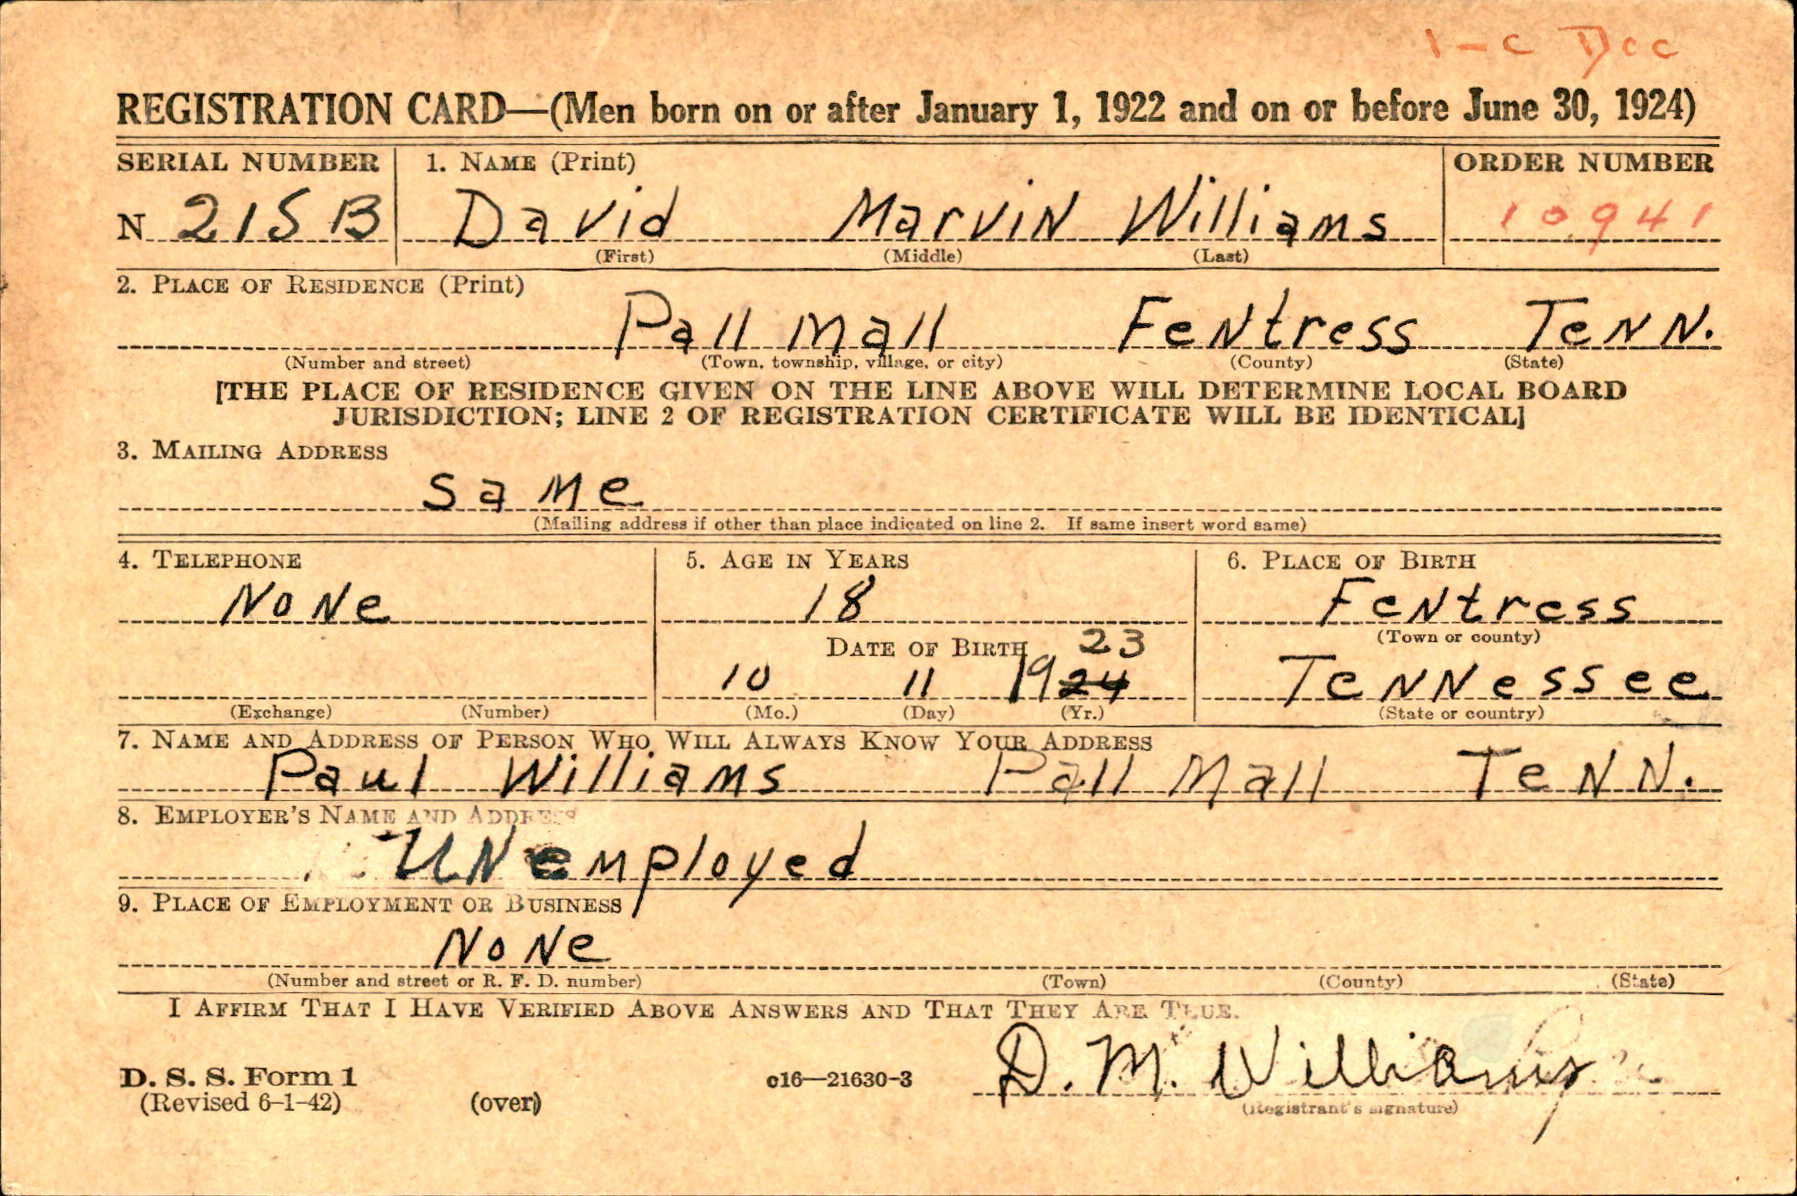 1-C Dec
REGISTRATION CARD—(Men born on or after January 1, 1922 and on or before June 30, 1924)
SERIAL NUMBER 1. NAME (Print) ORDER NUMBER
N 215 B David Marvin Williams 10941
(First) (Middle) (Last)
2. PLACE OF RESIDENCE (Print)
Pall Mall Fentress Tenn.
(Number and street) (Town, township, village, or city) (County) (State)
[THE PLACE OF RESIDENCE GIVEN ON THE LINE ABOVE WILL DETERMINE LOCAL BOARD
JURISDICTION; LINE 2 OF REGISTRATION CERTIFICATE WILL BE IDENTICAL]
3. MAILING ADDRESS
Same
(Mailing address if other than place indicated on line 2. If same insert word same)
4. TELEPHONE 5. AGE IN YEARS 6. PLACE OF BIRTH
None 18 Fentress
(Town or county)
DATE OF BIRTH 23
10 11 1924 Tennessee
(Exchange) (Number) (Mo.) (Day) (Yr.) (State or country)
7. NAME AND ADDRESS OF PERSON WHO WILL ALWAYS KNOW YOUR ADDRESS
Paul Williams Pall Mall Tenn.
8. EMPLOYER'S NAME AND ADDRESS
Unemployed
9. PLACE OF EMPLOYMENT OR BUSINESS
None
(Number and street or R. F. D. number) (Town) (County) (State)
I AFFIRM THAT I HAVE VERIFIED ABOVE ANSWERS AND THAT THEY ARE TRUE.
D. S. S. Form 1
(Revised 6-1-42) (over) c16—21630-3 D. M. Williams
(Registrant's signature)